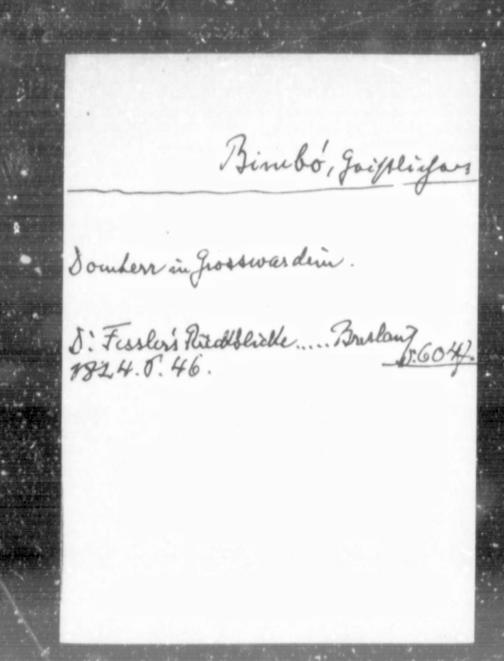 Bimbó, Geistlicher
Domherr in Grosswardein.
Dr Fessler's Rückblicke ..... Breslau
1824. S. 46.